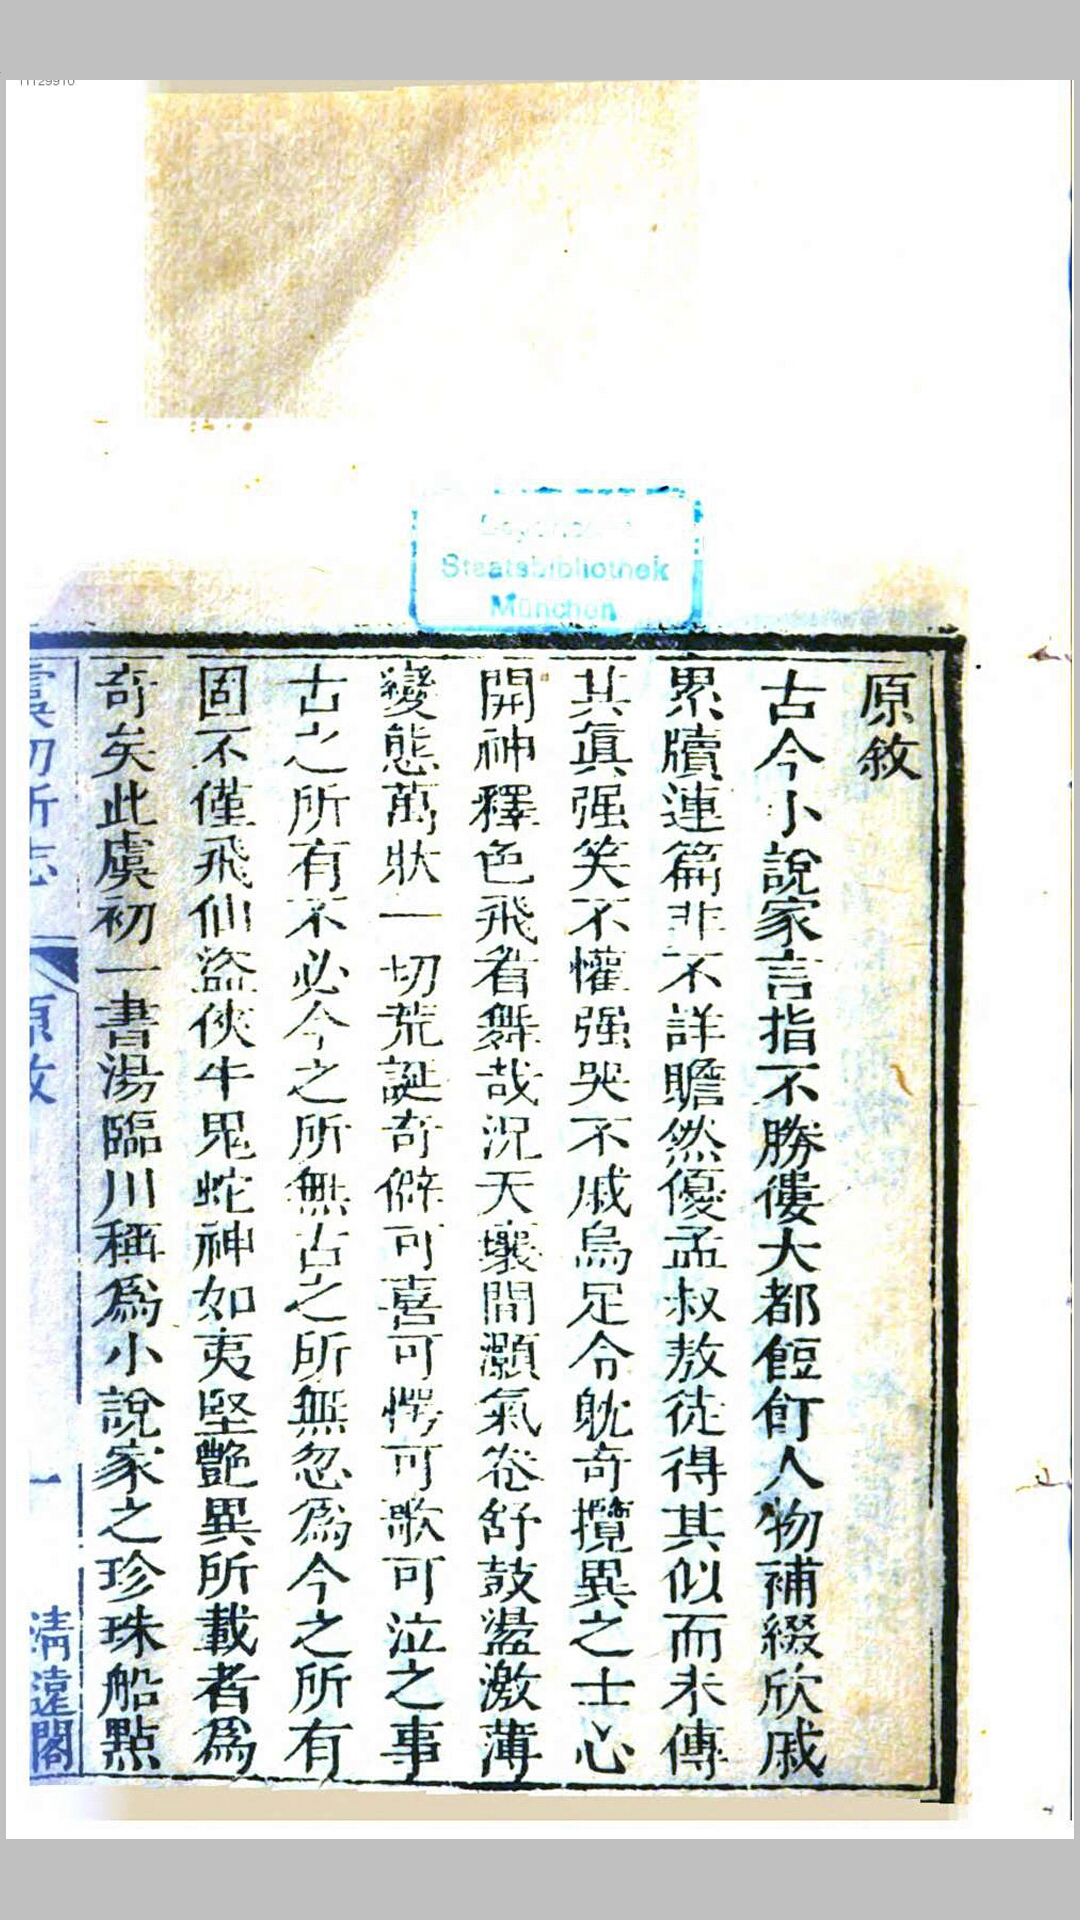 11129910
Bayerische
Staatsbibliothek
München
原敘
古今小說家言指不勝僂大都餖飣人物補綴欣戚
累牘連篇非不詳贍然優孟叔敖徒得其似而未傳
其眞强笑不懽强哭不戚烏足令躭奇攬異之士心
開神釋色飛眉舞哉況天壤間灝氣卷舒鼓盪激薄
變態萬狀一切荒誕奇僻可喜可愕可歌可泣之事
古之所有不必今之所無古之所無忽爲今之所有
固不僅飛仙盜俠牛鬼蛇神如夷堅艷異所載者爲
奇矣此虞初一書湯臨川稱爲小說家之珍珠船點
虞初新志
原敘
一
清遠閣